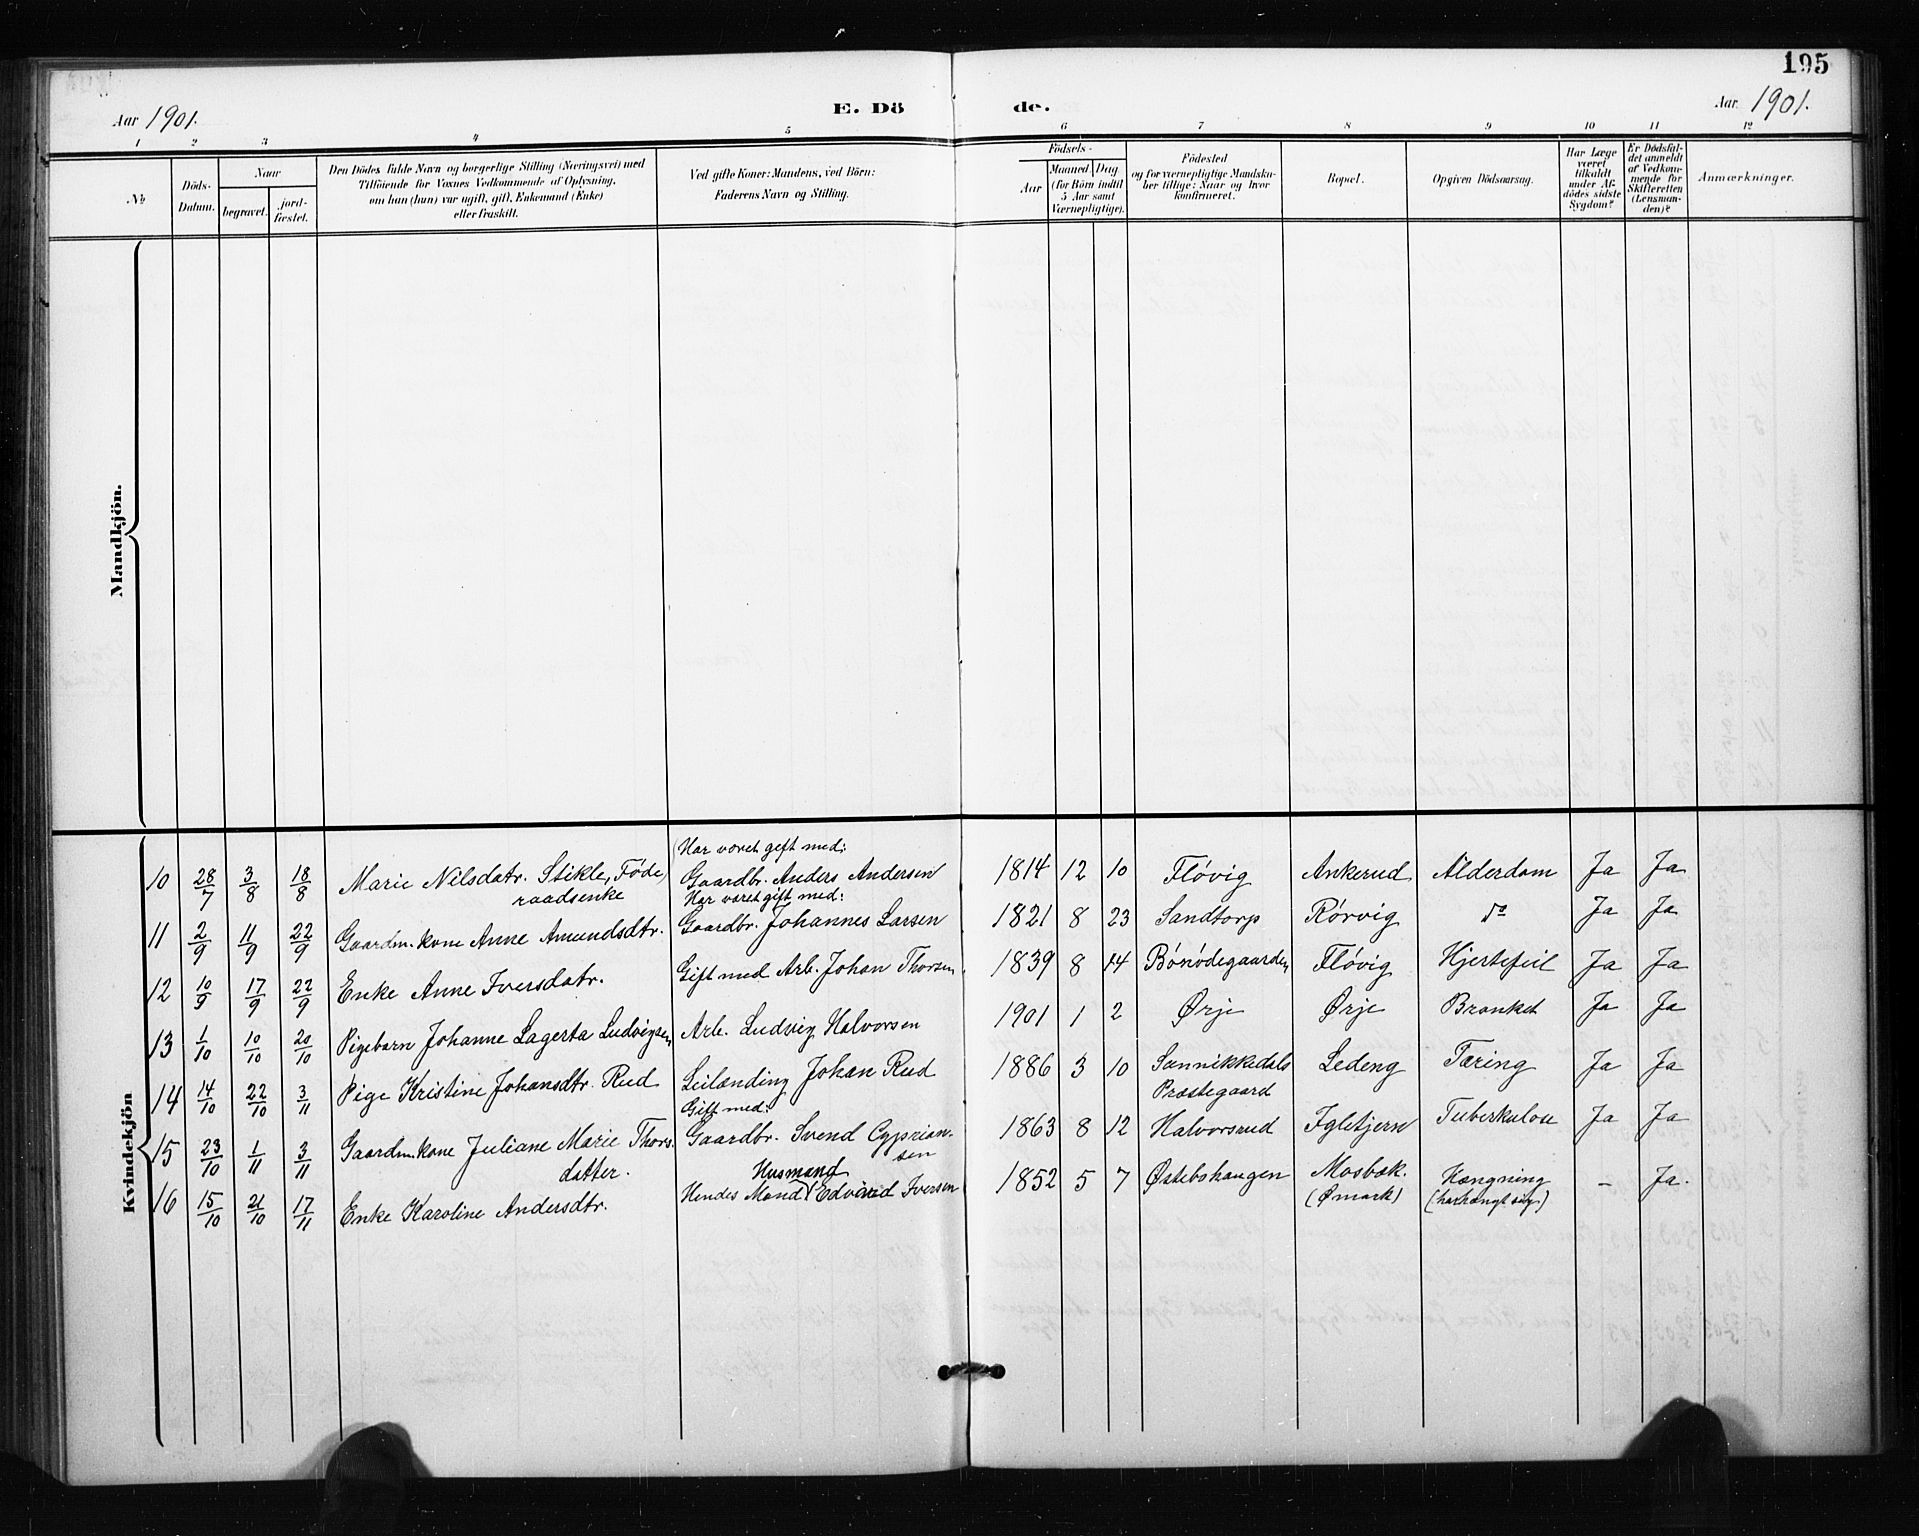 195
Aar 1901.
E. Dö de.
Aar 1901.
1 2 3 4 5 6 7 8 9 10 11 12
No
Döds-Datum.
Naar
begravet.
jord-fæstet.
Den Dödes fulde Navn og borgerlige Stilling (Næringsvei) med
Tilföiende for Voxnes Vedkommende af Oplysning,
om han (hun) var ugift, gift, Enkemand (Enke)
eller fraskilt.
Ved gifte Koner: Mandens, ved Börn:
Faderens Navn og Stilling.
Födsels-
Aar
Maaned. Dag
(for Börn indtil
5 Aar samt
Værnepligtige).
Födested
og for værnepligtige Mandska-
ber tillige: Naar og hvor
konfirmeret.
Bopæl.
Opgiven Dödsaarsag.
Har Læge
været
tilkaldt
under Af-
dödes sidste
Sygdom?
Er Dödsfal-
det anmeldt
af Vedkom-
mende for
Skifteretten
(Lensman-
den)?
Anmærkninger.
Mandkjön.
Kvindekjön
Har været gift med:
10 28/7 3/8 18/8 Marie Nilsdatr. Stikle, Føde Gaardbr. Anders Andersen 1814 12 10 Fløvig Ankerud Alderdom Ja Ja
raadsenke
Har været gift med:
11 2/9 11/9 22/9 Gaardm.kone Anne Amundsdtr. Gaardbr. Johannes Larsen 1821 8 23 Sandtorp Rørvig do Ja Ja
12 10/9 17/9 22/9 Enke Anne Iversdatr. Gift med Arb. Johan Thorsen 1839 8 14 Fløvig Hjertefeil Ja Ja
13 1/10 10/10 20/10 Pigebarn Johanne Lagerta Ludvigsen Arb. Ludvig Halvorsen 1901 1 2 Ørje Ørje Bronket Ja Ja
14 14/10 22/10 3/11 Pige Kristine Johansdtr. Rud Leilænding Johan Rud 1886 3 10 Sannikkedals Ledeng Tæring Ja Ja
Præstegaard
Gift med:
15 23/10 1/11 3/11 Gaardm.kone Juliane Marie Thors Gaardbr. Svend Cyprian- 1863 8 12 Halvorsrud Igletjern Tuberkulose Ja Ja
datter. sen
Husmand
16 15/10 21/10 17/11 Enke Karoline Andersdtr. Hendes Mand Edvard Iversen 1852 5 7 Østebshaugen Mosbæk. Hængning – Ja.
(Ømark) (har hængt sig)